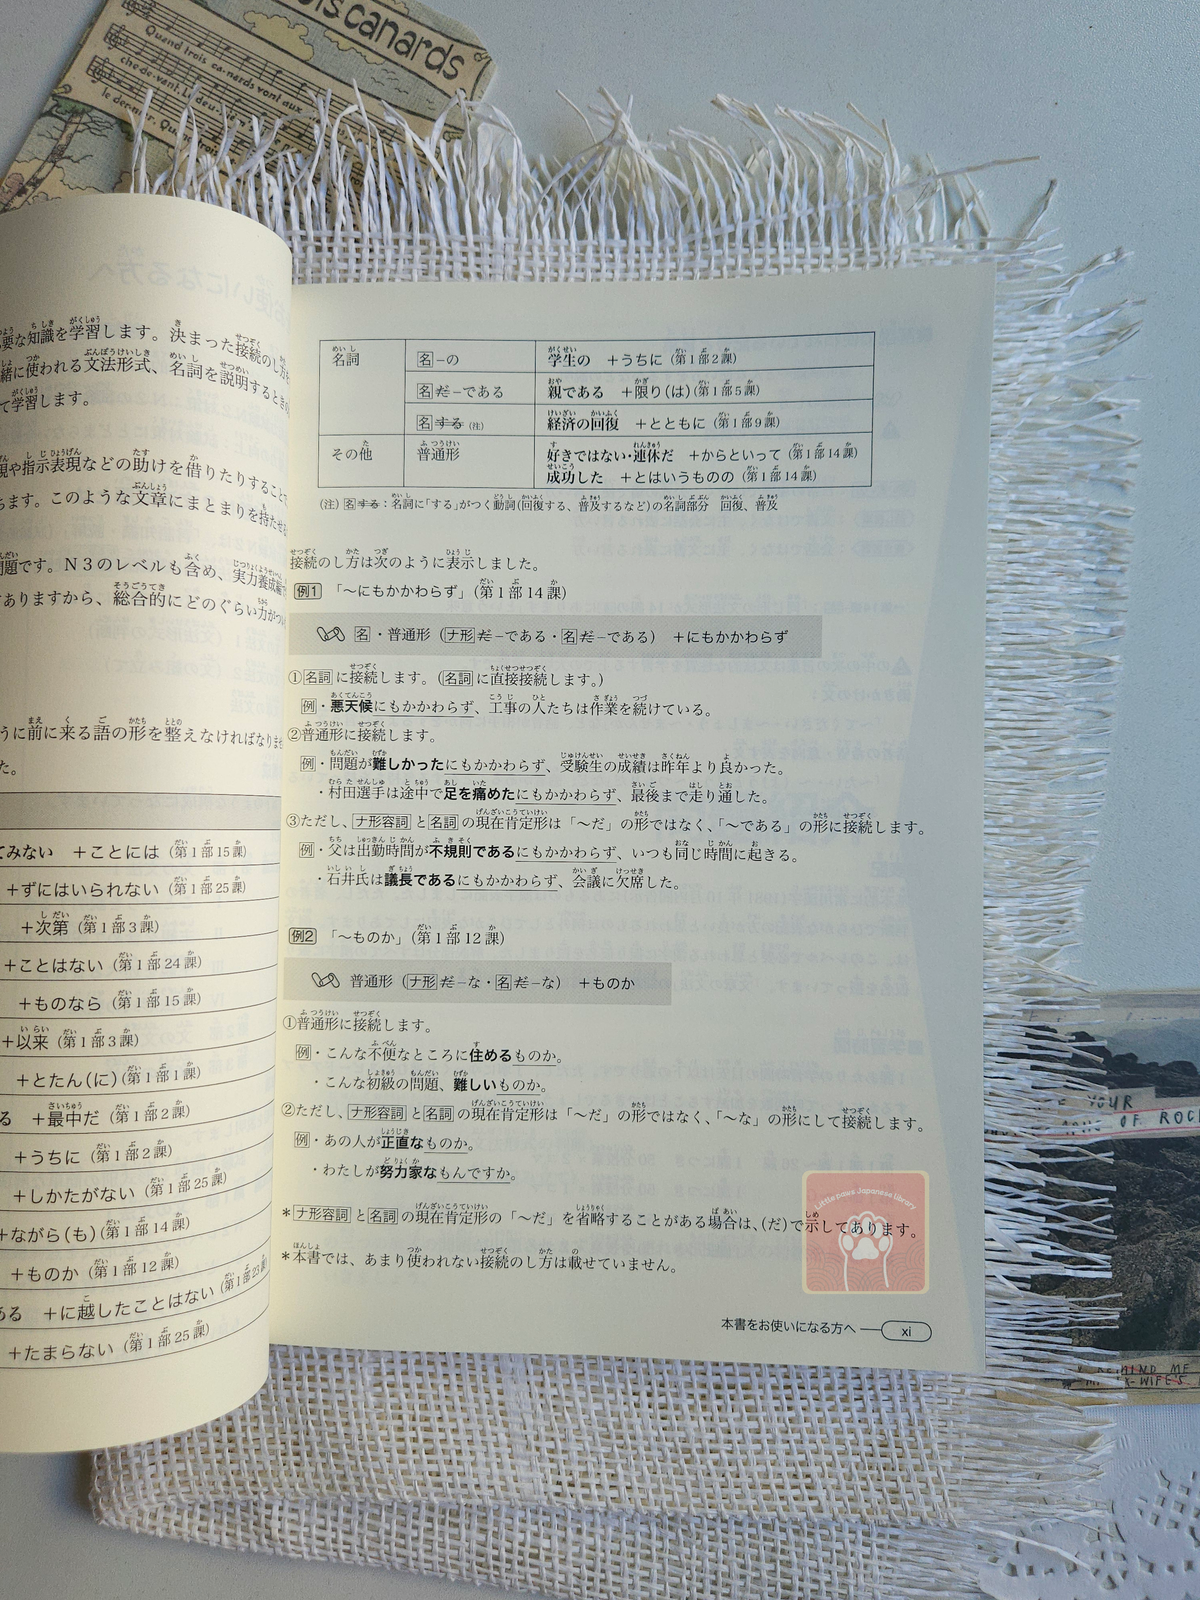 ois canards
Quand trois ca-nards vont aux
che-de-vant. Le deu-
le der-nier. Qu
要な知識を学習します。決まった接続のし方
緒に使われる文法形式、名詞を説明するときの
て学習します。
現や指示表現などの助けを借りたりすること
ちます。このような文章にまとまりを持たせる
問題です。N3のレベルも含め、実力養成編
ありますから、総合的にどのぐらい力がつい
うに前に来る語の形を整えなければなりませ
た。
てみない ＋ことには(第1部15課)
＋ずにはいられない(第1部25課)
＋次第(第1部3課)
＋ことはない(第1部24課)
＋ものなら(第1部15課)
＋以来(第1部3課)
＋とたん(に)(第1部1課)
る ＋最中だ(第1部2課)
＋うちに(第1部2課)
＋しかたがない(第1部25課)
＋ながら(も)(第1部14課)
＋ものか(第1部12課)
ある ＋に越したことはない(第1部23課)
＋たまらない(第1部25課)
名詞 名-の 学生の ＋うちに(第1部2課)
名だ-である 親である ＋限り(は)(第1部5課)
名する(注) 経済の回復 ＋とともに(第1部9課)
その他 普通形 好きではない・連休だ ＋からといって(第1部14課)
成功した ＋とはいうものの(第1部14課)
(注)名する：名詞に「する」がつく動詞(回復する、普及するなど)の名詞部分 回復、普及
接続のし方は次のように表示しました。
例1 「～にもかかわらず」(第1部14課)
名・普通形(ナ形だ-である・名だ-である) ＋にもかかわらず
①名詞に接続します。(名詞に直接接続します。)
例・悪天候にもかかわらず、工事の人たちは作業を続けている。
②普通形に接続します。
例・問題が難しかったにもかかわらず、受験生の成績は昨年より良かった。
・村田選手は途中で足を痛めたにもかかわらず、最後まで走り通した。
③ただし、ナ形容詞と名詞の現在肯定形は「～だ」の形ではなく、「～である」の形に接続します。
例・父は出勤時間が不規則であるにもかかわらず、いつも同じ時間に起きる。
・石井氏は議長であるにもかかわらず、会議に欠席した。
例2 「～ものか」(第1部12課)
普通形(ナ形だ-な・名だ-な) ＋ものか
①普通形に接続します。
例・こんな不便なところに住めるものか。
・こんな初級の問題、難しいものか。
②ただし、ナ形容詞と名詞の現在肯定形は「～だ」の形ではなく、「～な」の形にして接続します。
例・あの人が正直なものか。
・わたしが努力家なもんですか。
＊ナ形容詞と名詞の現在肯定形の「～だ」を省略することがある場合は、(だ)で示してあります。
＊本書では、あまり使われない接続のし方は載せていません。
Little paws Japanese library
本書をお使いになる方へ xi
YOUR
OF ROC
MIND ME
X-WIFE'S